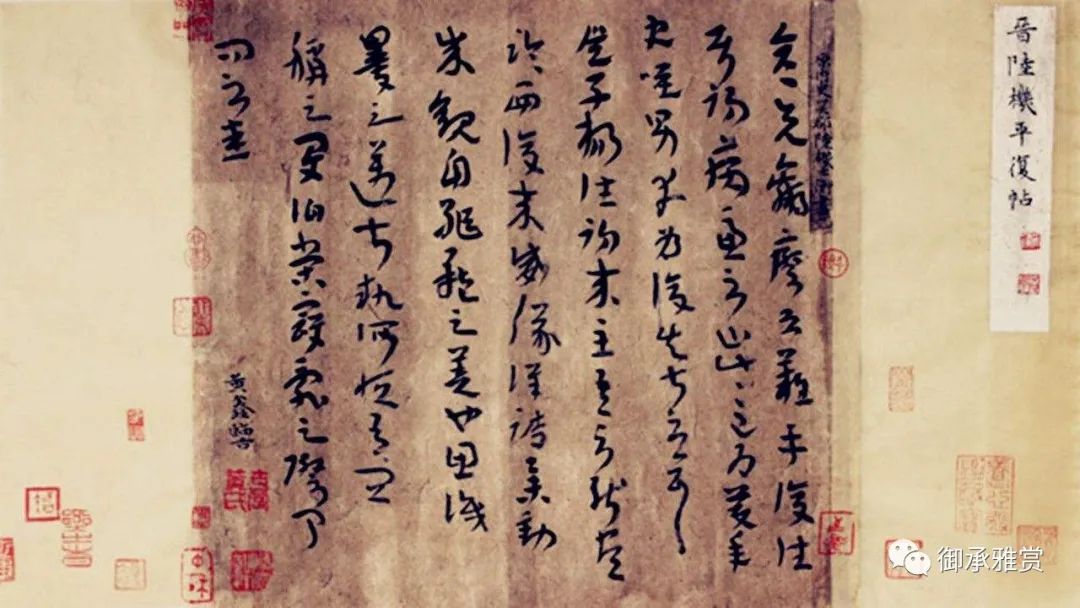 晉陸機平復帖
彦先羸瘵恐難平復往
屬初病慮不止此此已為慶承
使唯男幸為復失前憂耳
吳子楊往初來主吾不能盡
臨西復來威儀詳跱舉動
成觀自軀體之美也思識
量之邁前執所恒有宜
稱之夏伯榮寇亂之際聞
問不悉
黃鑫臨
御承雅赏